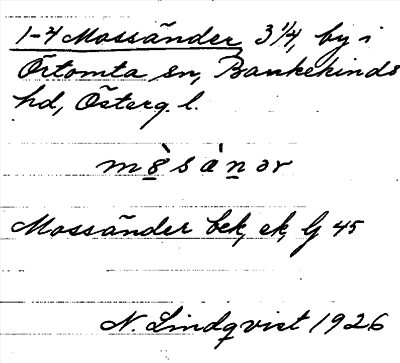 1-4 Mossänder 3 1/4, by i
Örtomta sn, Bankekinds
hd, Österg. l.
Mossänder bek, ek, Lj 45
N. Lindqvist 1926